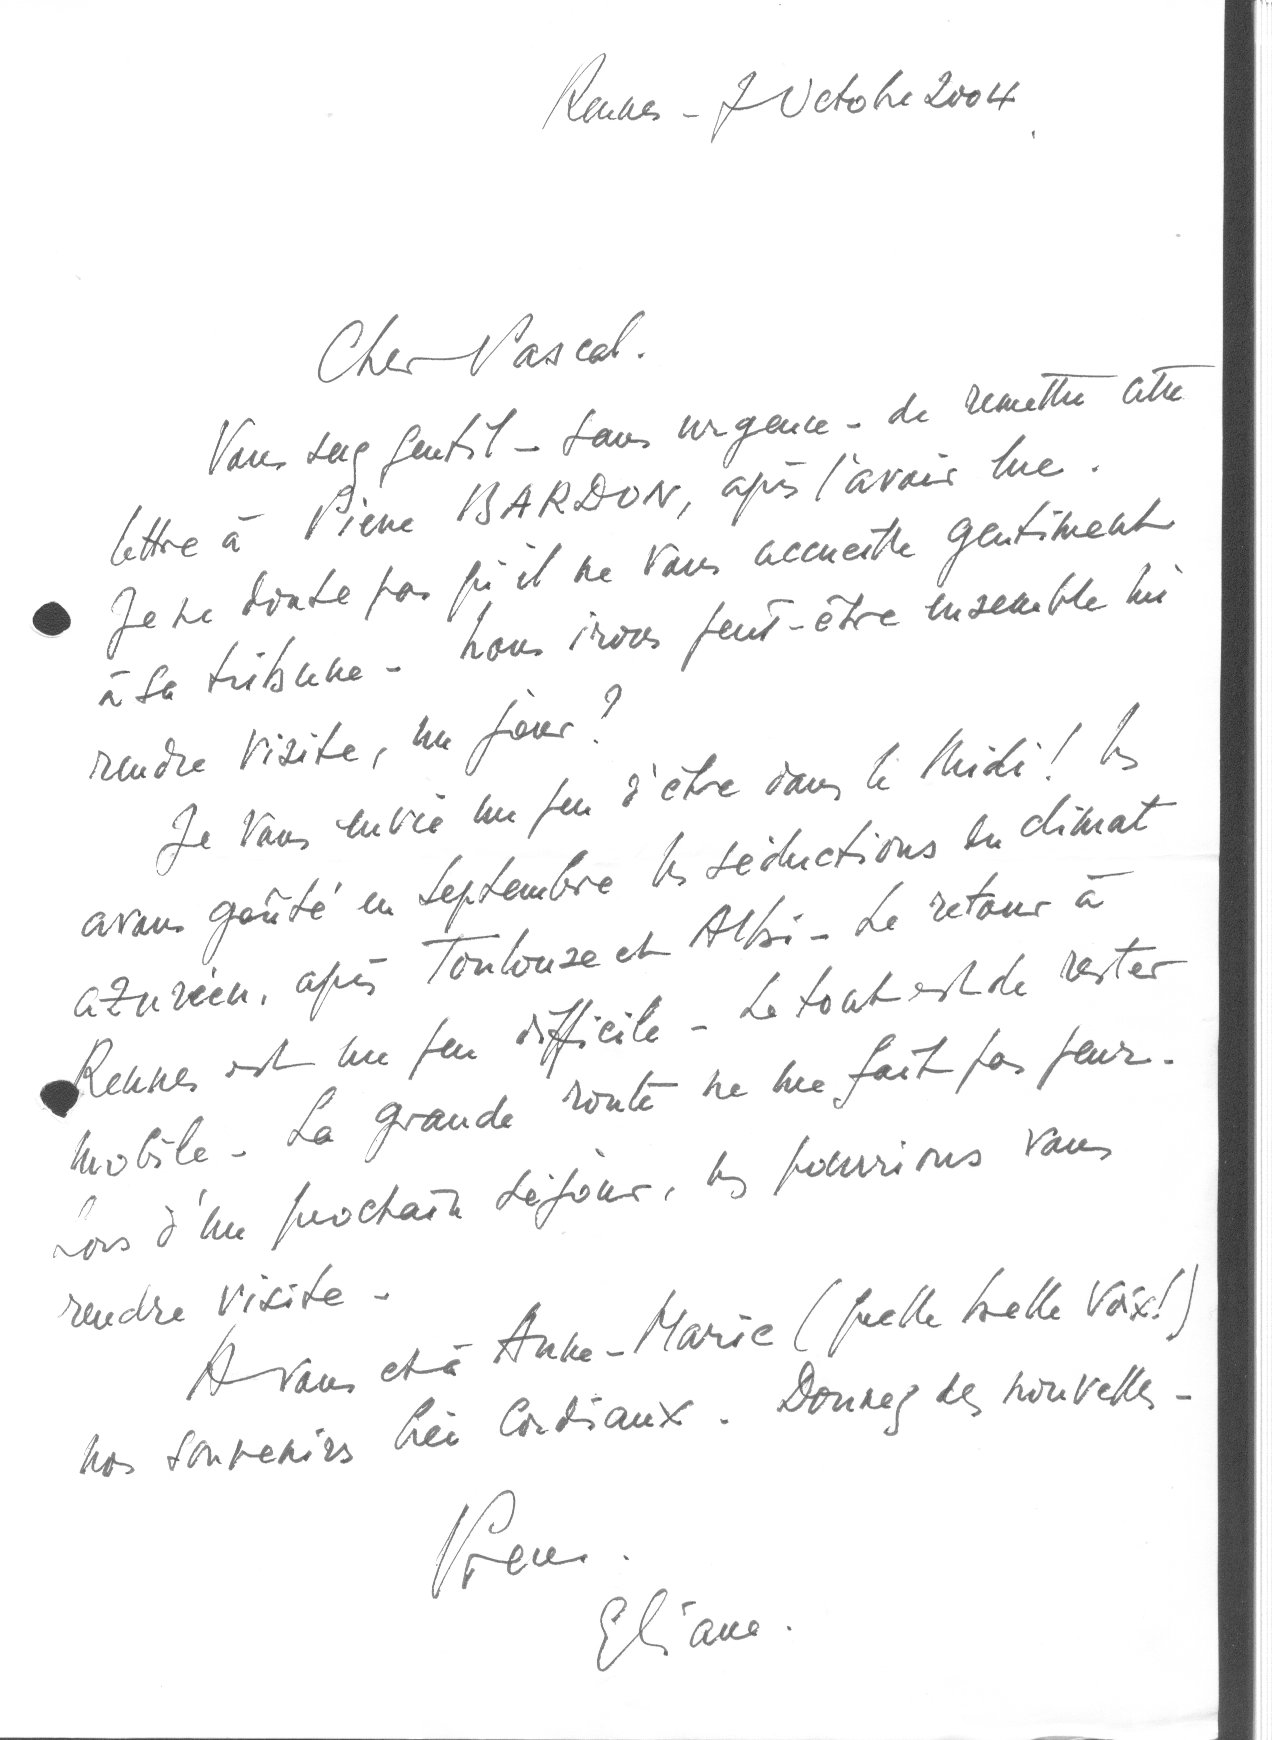 Rennes - 7 Octobre 2004
Cher Pascal.
Vous serez gentil - sans urgence - de remettre cette
lettre à Pierre BARDON, après l'avoir lue.
Je ne doute pas qu'il ne vous accueille gentiment
à sa tribune - Nous irons peut-être ensemble lui
rendre visite, un jour ?
Je vous envie un peu d'être dans le Midi ! Ns
avons goûté en septembre les séductions du climat
azuréen, après Toulouse et Albi - Le retour à
Rennes est un peu difficile - Le tout est de rester
mobile - La grande route ne me fait pas peur -
Lors d'un prochain séjour, ns pourrions vous
rendre visite -
A vous et à Anne-Marie (quelle belle voix !)
nos souvenirs bien cordiaux. Donnez des nouvelles -
Pierre.
Eliane.